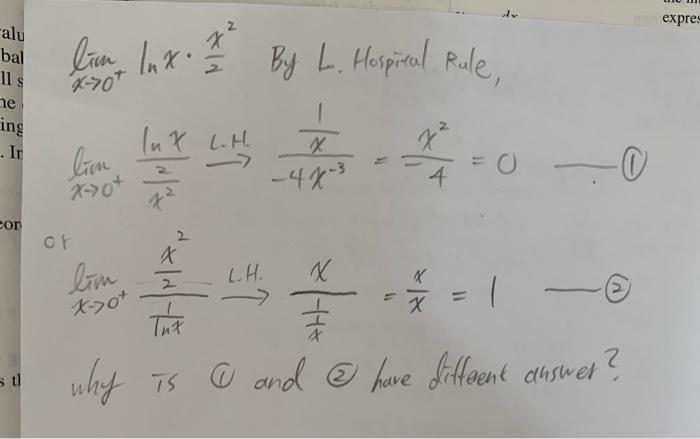 expres
dx
alu
bal
ll s
ne
ing
. In
eor
s tl
lim x→0⁺ ln x · x²/2 By L. Hospital Rule,
lim x→0⁺ (ln x)/(2/x²) L.H. → (1/x)/(-4x⁻³) = x²/-4 = 0 —①
or
lim x→0⁺ (x²/2)/(1/ln x) L.H. → x/(1/(1/x)) = x/x = 1 —②
why is ① and ② have different answer?